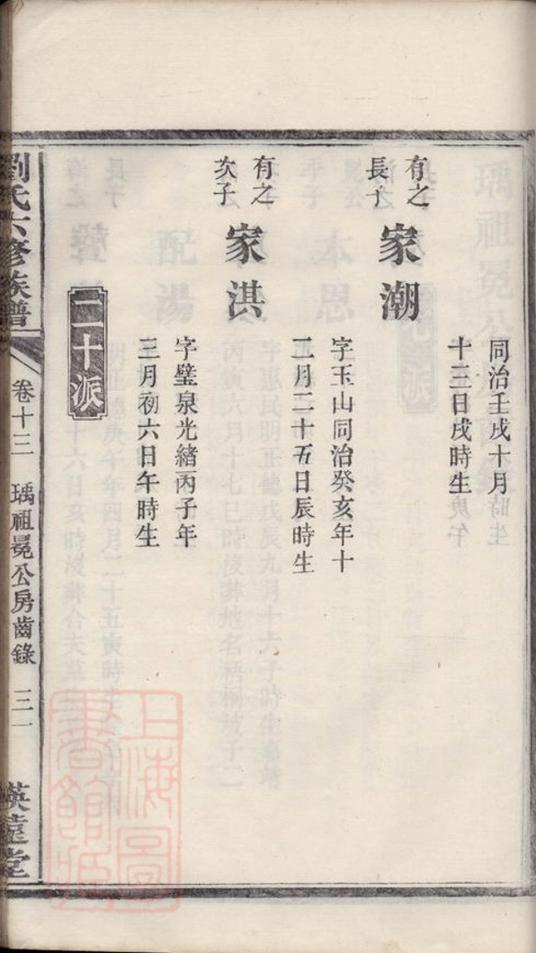 同治壬戌十月
十三日戌時生
有之
長子
家潮
字玉山同治癸亥年十
二月二十五日辰時生
有之
次子
家洪
字璧泉光緒丙子年
三月初六日午時生
二十派
劉氏六修族譜
卷十三
瑀祖冕公房齒錄
三一
瑛遠堂
上海圖
書館藏